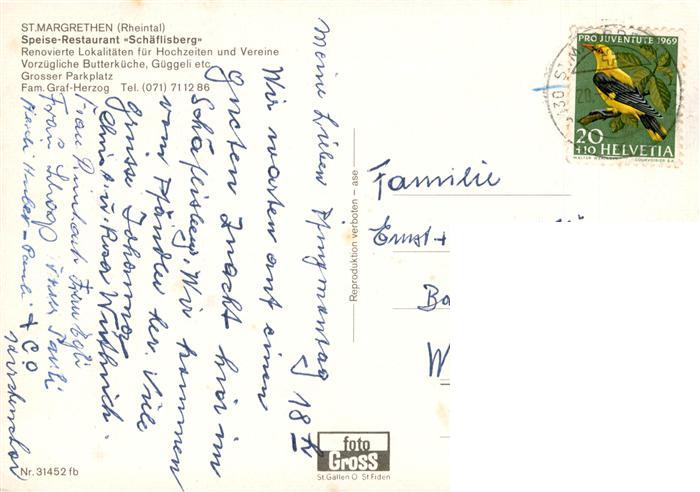 ST. MARGRETHEN (Rheintal)
Speise-Restaurant «Schäflisberg»
Renovierte Lokalitäten für Hochzeiten und Vereine
Vorzügliche Butterküche, Güggeli etc.
Grosser Parkplatz
Fam. Graf-Herzog Tel. (071) 71 12 86
Meine Lieben Pfingmontag 18 h
Wir warten auf einen
Guten Znacht hier im
Schäflisberg. Wir kommen
vom Pfändler her. Viele
Grüsse Johannes
Christ. u. Rosa Wüthrich.
Frau Frau Egli
Frau Pauli
Huber-Pauli & Co
Reproduktion verboten – ase
Familie
Ernst +
Ba
W
PRO JUVENTUTE 1969
20
+10 HELVETIA
COURVOISIER S.A.
foto
Gross
St.Gallen O St.Fiden
Nr. 31452 fb